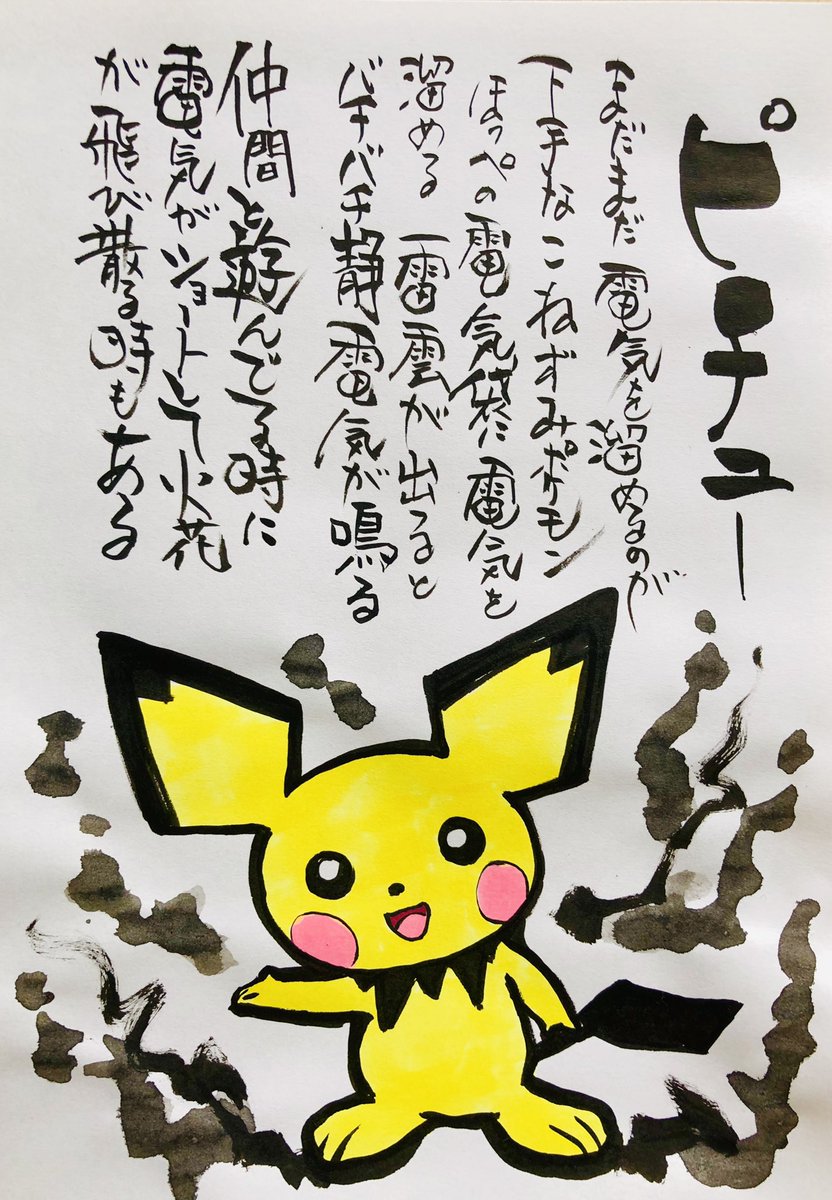 ピチュー
まだまだ電気を溜めるのが
下手なこねずみポケモン
ほっぺの電気袋に電気を
溜める 雷雲が出ると
バチバチ静電気が鳴る
仲間と遊んでる時に
電気がショートして火花
が飛び散る時もある